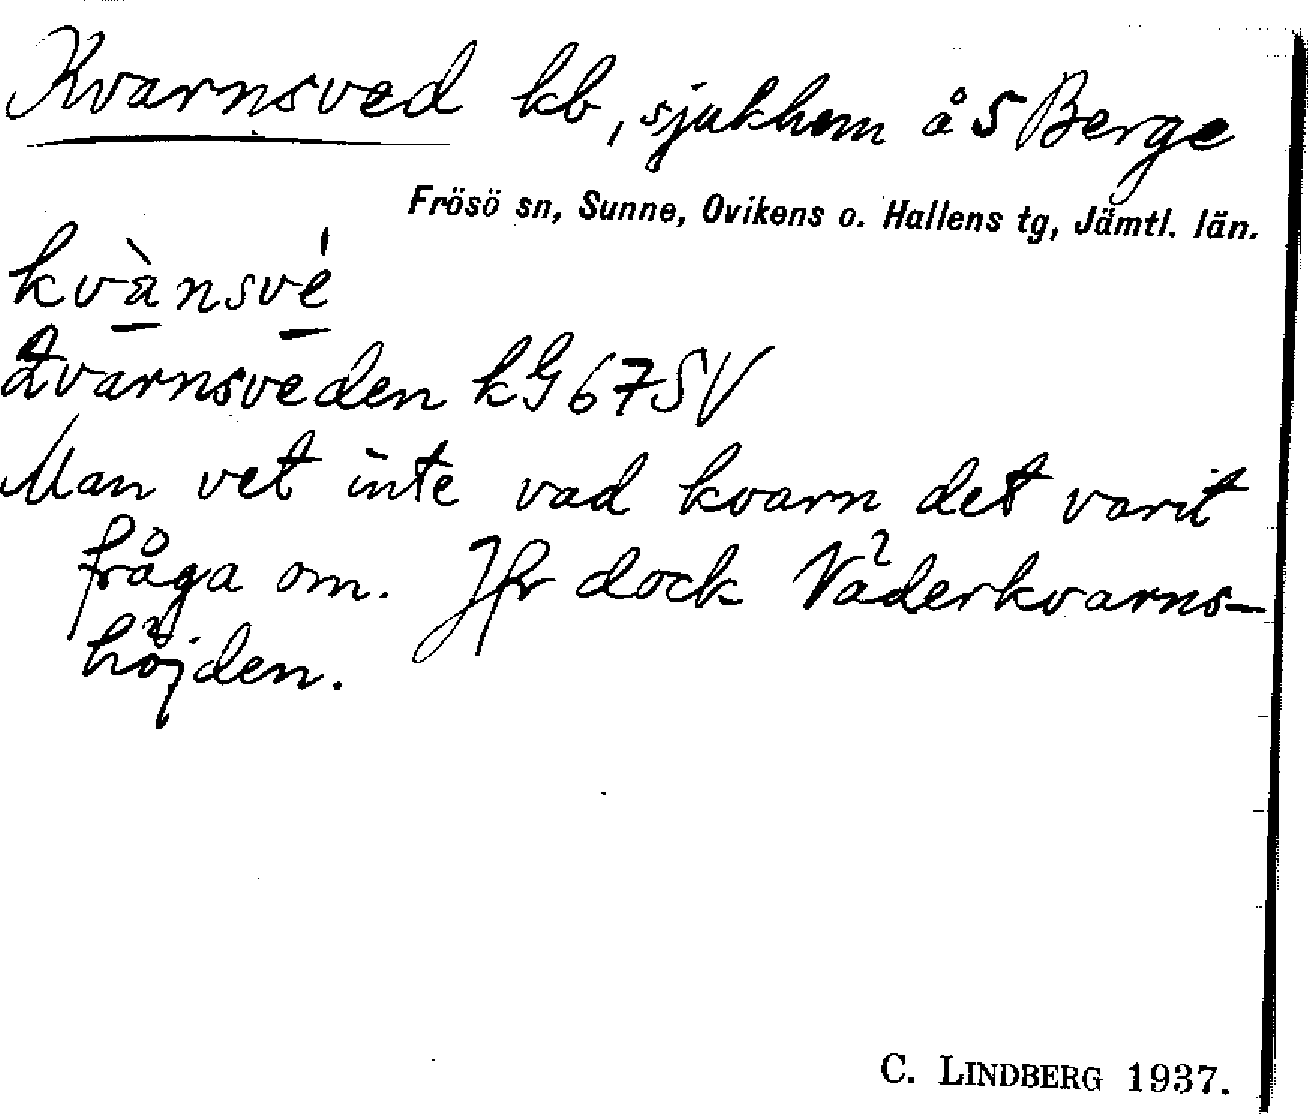 Kvarnsved kb, sjukhem å S Berge
Frösö sn, Sunne, Ovikens o. Hallens tg, Jämtl. län.
kvànsvé
Qvarnsveden kG 67 SV
Man vet inte vad kvarn det varit
fråga om. Jfr dock Väderkvarns-
höjden.
C. LINDBERG 1937.